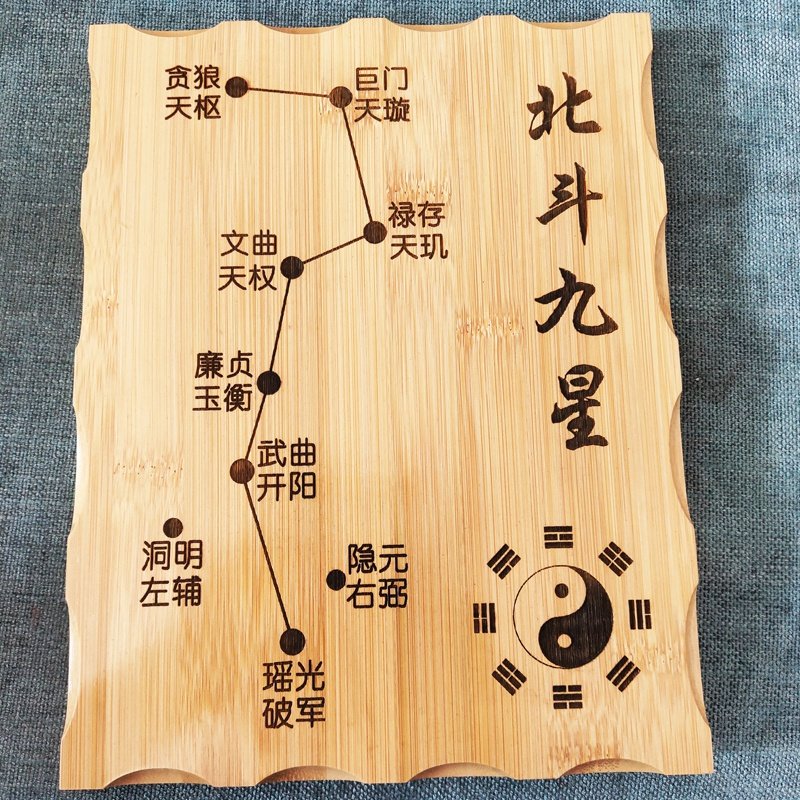 北斗九星
贪狼
天枢
巨门
天璇
禄存
天玑
文曲
天权
廉贞
玉衡
武曲
开阳
洞明
左辅
隐元
右弼
瑶光
破军